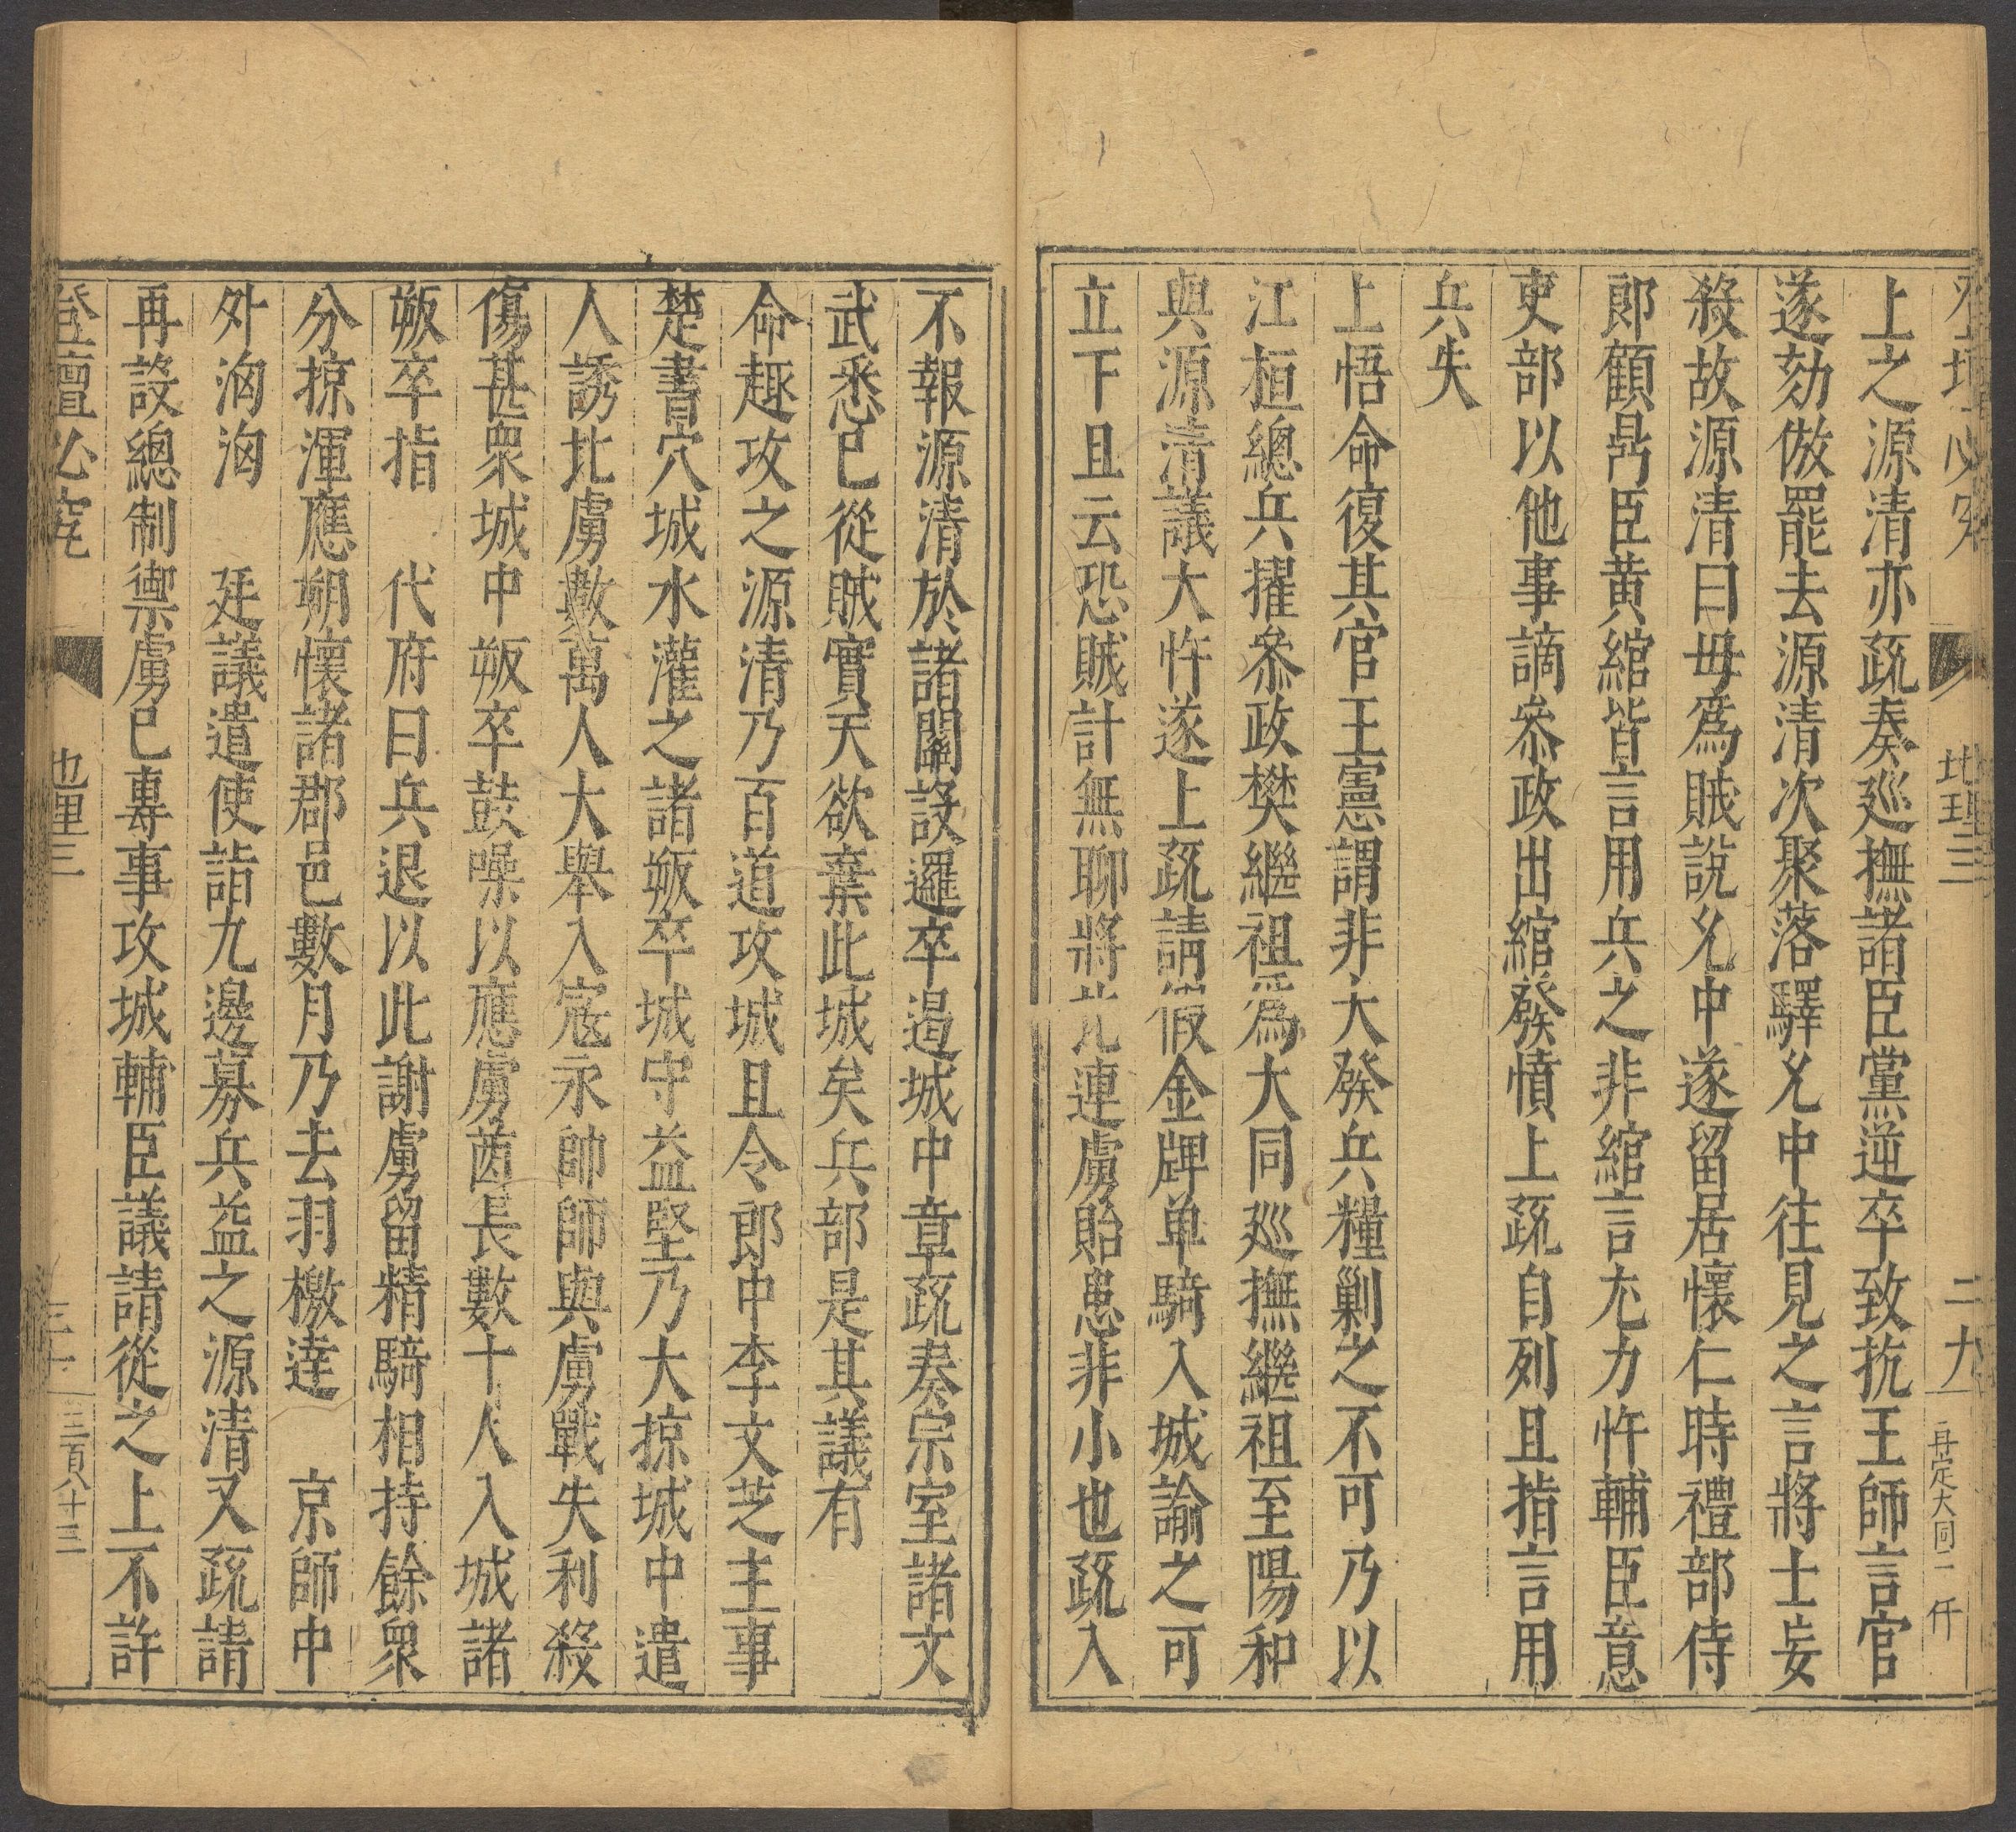 登壇必究 地理三 二九 再定大同二 仟
上之源清亦疏奏廵撫諸臣黨逆卒致抗王師言官
遂劾倣罷去源清次聚落驛𠃔中往見之言將士妄
殺故源清曰毋爲賊說𠃔中遂留居懷仁時禮部侍
郎顧鼎臣黃綰皆言用兵之非綰言尢力忤輔臣意
吏部以他事謫叅政出綰發憤上疏自列且指言用
兵失
上悟命復其官王憲謂非大發兵糧剿之不可乃以
江桓總兵擢叅政樊繼祖爲大同廵撫繼祖至陽和
與源清議大忤遂上疏請假金牌单騎入城諭之可
立下且云恐賊計無聊將北連虜貽患非小也疏入
不報源清於諸關設邏卒遏城中章疏奏宗室諸文
武悉已從賊實天欲棄此城矣兵部是其議有
命趣攻之源清乃百道攻城且令郎中李文芝主事
楚書穴城水灌之諸叛卒城守益堅乃大掠城中遣
人誘北虜數萬人大舉入寇永帥師與虜戰失利殺
傷甚衆城中叛卒鼓噪以應虜酋長數十人入城諸
叛卒指 代府曰兵退以此謝虜留精騎相持餘衆
分掠渾應朔懷諸郡邑數月乃去羽檄達 京師中
外洶洶 廷議遣使詣九邊募兵益之源清又疏請
再設總制禦虜已專事攻城輔臣議請從之上不許
登壇必究 地理三 三十 三百八十三